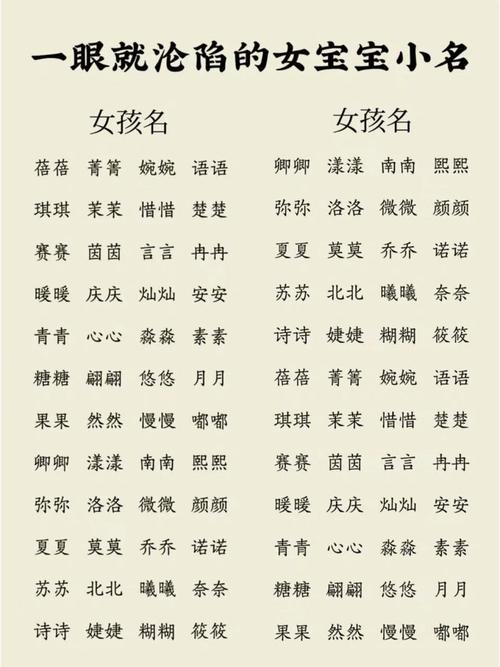 一眼就沦陷的女宝宝小名
女孩名
蓓蓓 菁菁 婉婉 语语
琪琪 茉茉 惜惜 楚楚
赛赛 茵茵 言言 冉冉
暖暖 庆庆 灿灿 安安
青青 心心 淼淼 素素
糖糖 翩翩 悠悠 月月
果果 然然 慢慢 嘟嘟
卿卿 漾漾 南南 熙熙
弥弥 洛洛 微微 颜颜
夏夏 莫莫 乔乔 诺诺
苏苏 北北 曦曦 奈奈
诗诗 婕婕 糊糊 筱筱
女孩名
卿卿 漾漾 南南 熙熙
弥弥 洛洛 微微 颜颜
夏夏 莫莫 乔乔 诺诺
苏苏 北北 曦曦 奈奈
诗诗 婕婕 糊糊 筱筱
蓓蓓 菁菁 婉婉 语语
琪琪 茉茉 惜惜 楚楚
赛赛 茵茵 言言 冉冉
暖暖 庆庆 灿灿 安安
青青 心心 淼淼 素素
糖糖 翩翩 悠悠 月月
果果 然然 慢慢 嘟嘟